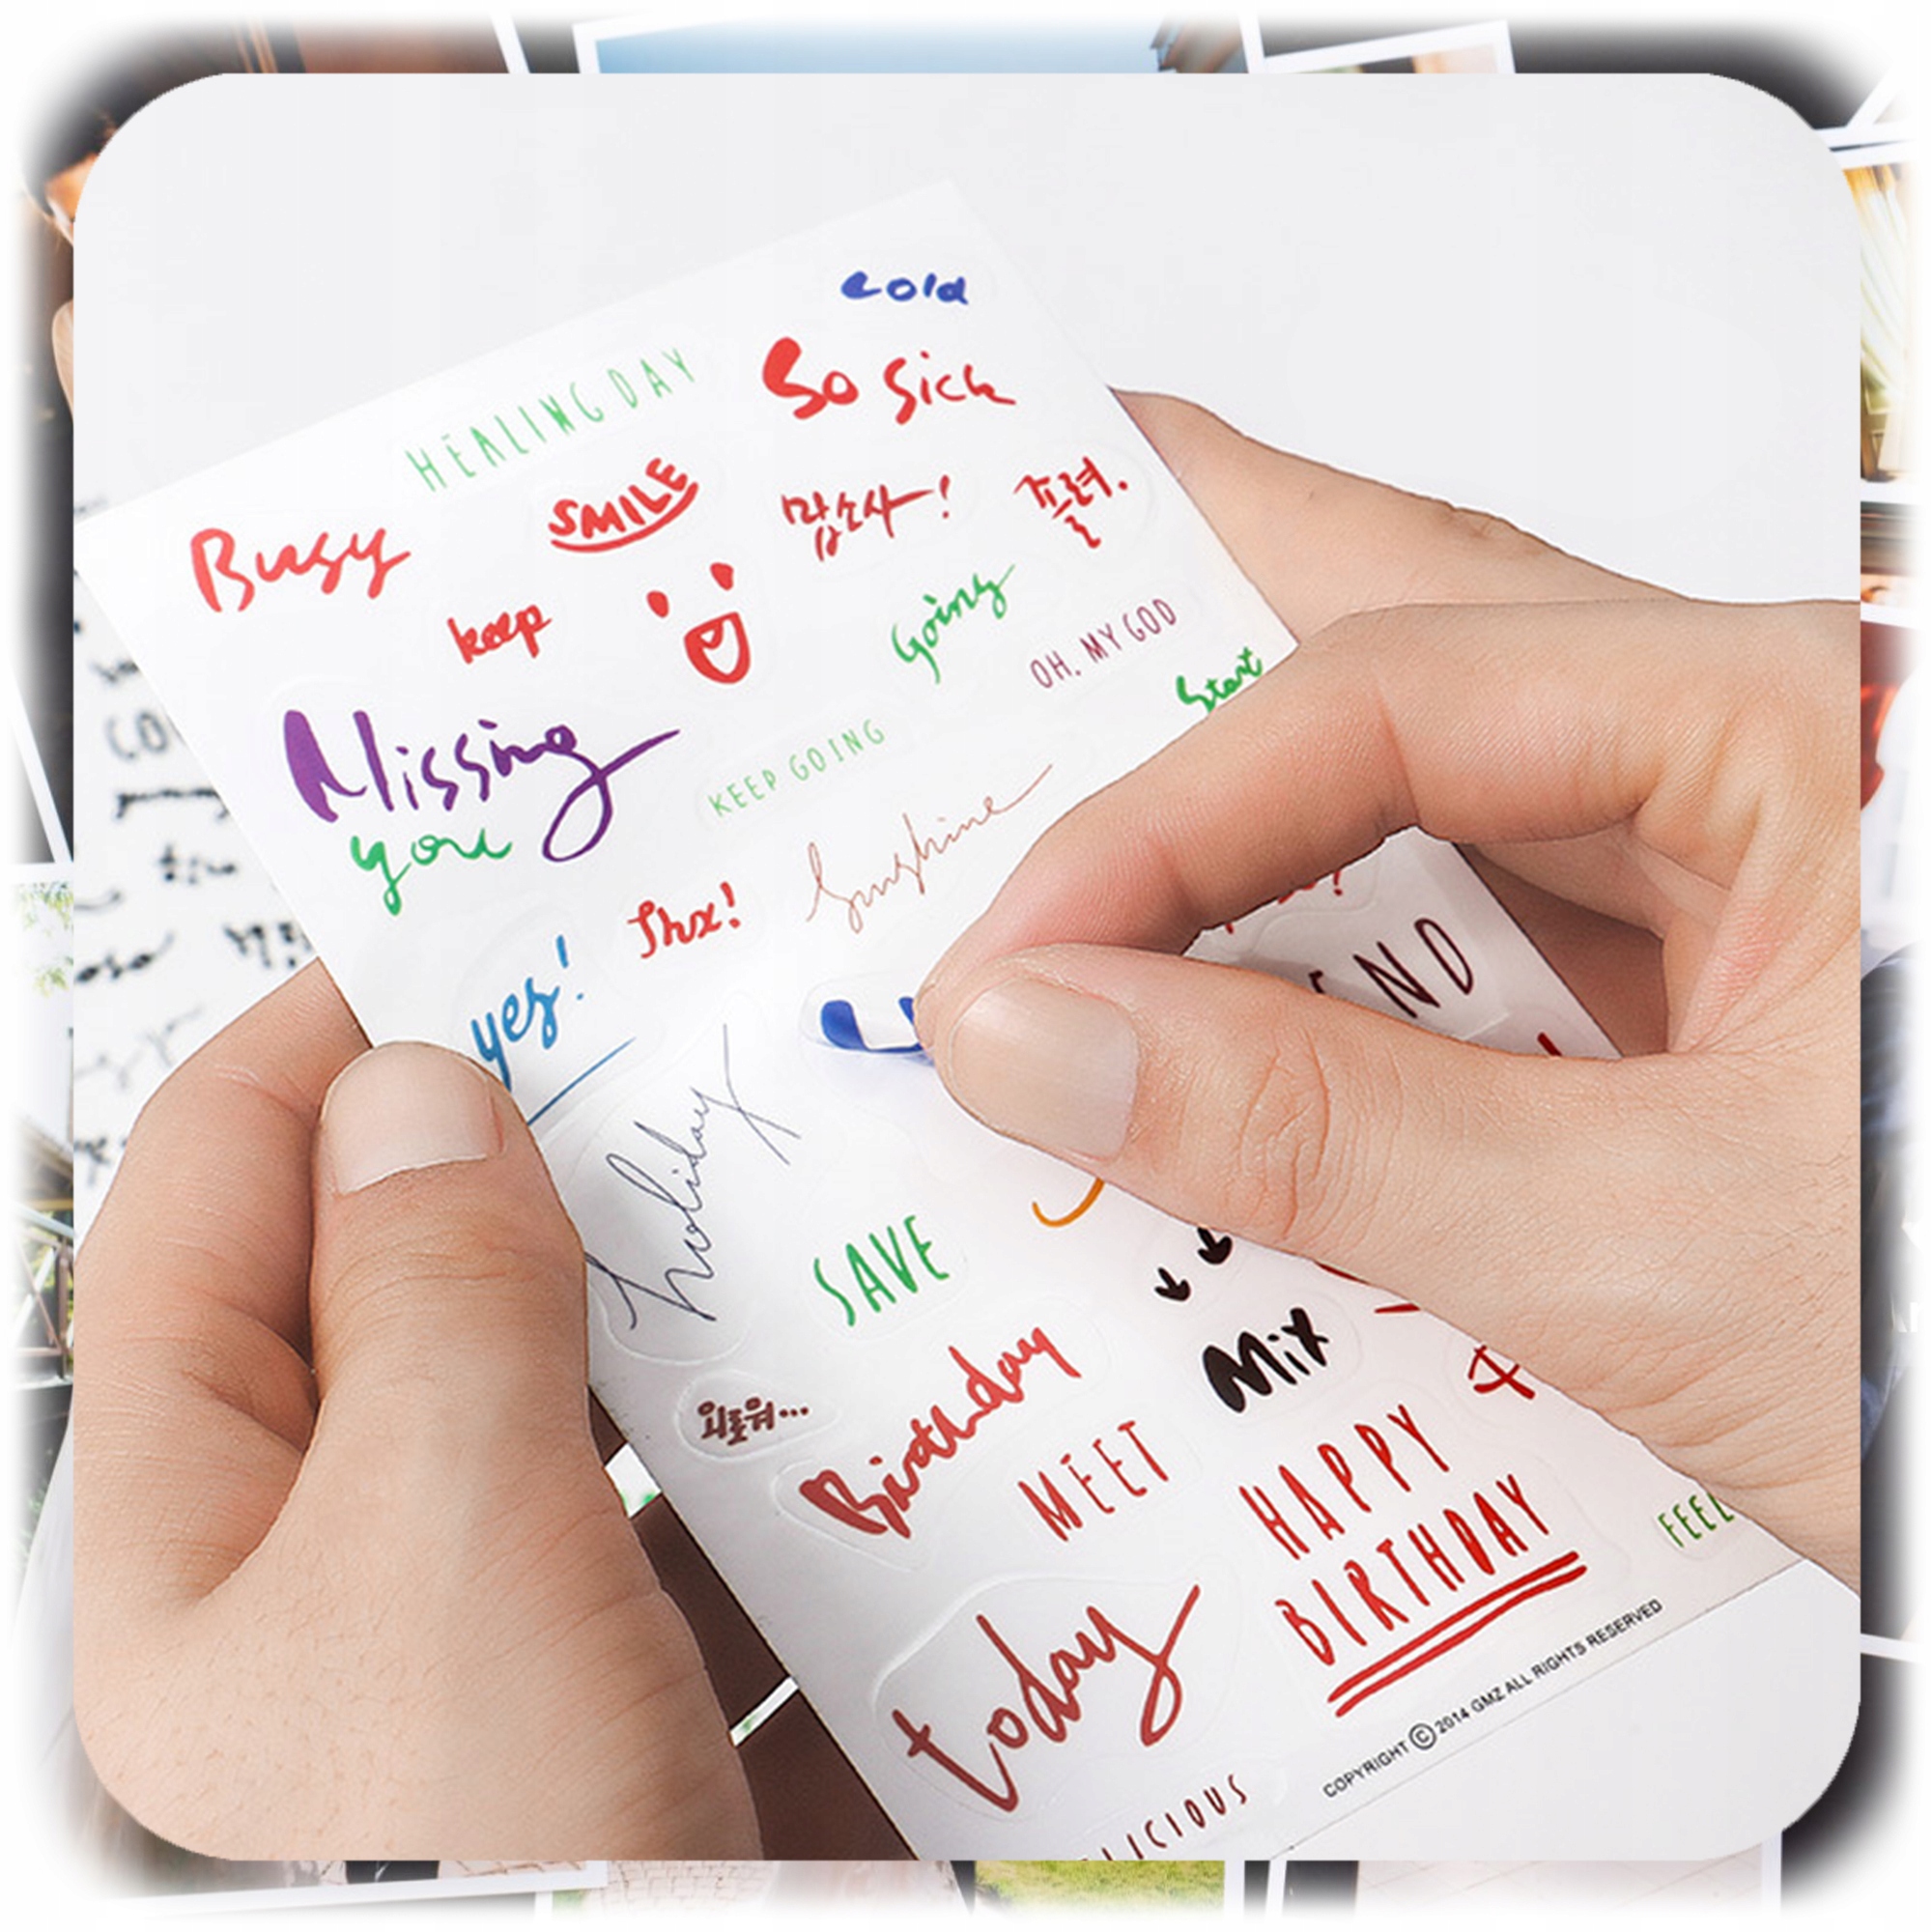 cold
HEALING DAY
So sick
Busy
SMILE
맙소사!
졸려.
keep
Going
OH, MY GOD
Start
Missing
you
KEEP GOING
Sunshine
Thx!
yes!
END
holiday
SAVE
Mix
외로워...
Birthday
MEET
HAPPY
BIRTHDAY
FEEL
today
LICIOUS
COPYRIGHT © 2014 GMZ ALL RIGHTS RESERVED